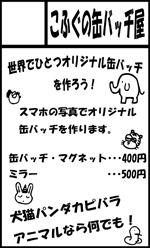 こふぐの缶バッチ屋
世界でひとつオリジナル缶バッチ
を作ろう!
スマホの写真でオリジナル
缶バッチを作ります。
缶バッチ・マグネット･･･400円
ミラー ･･･500円
犬猫パンダカピバラ
アニマルなら何でも!